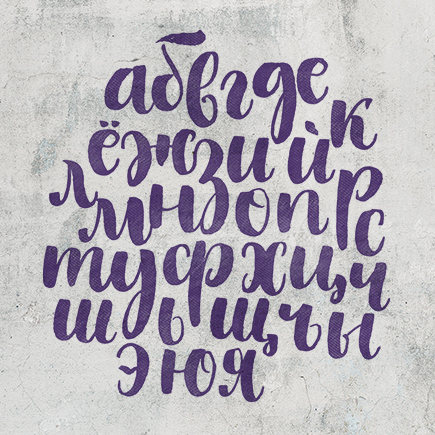 абвгде
ёжзийк
лмнопрс
туфхцч
шьщъы
эюя